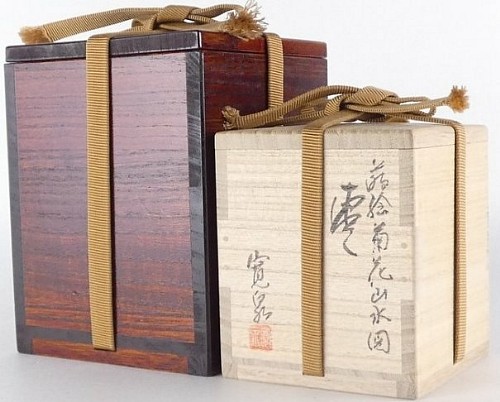 蒔絵菊花山水図
棗
寛泉